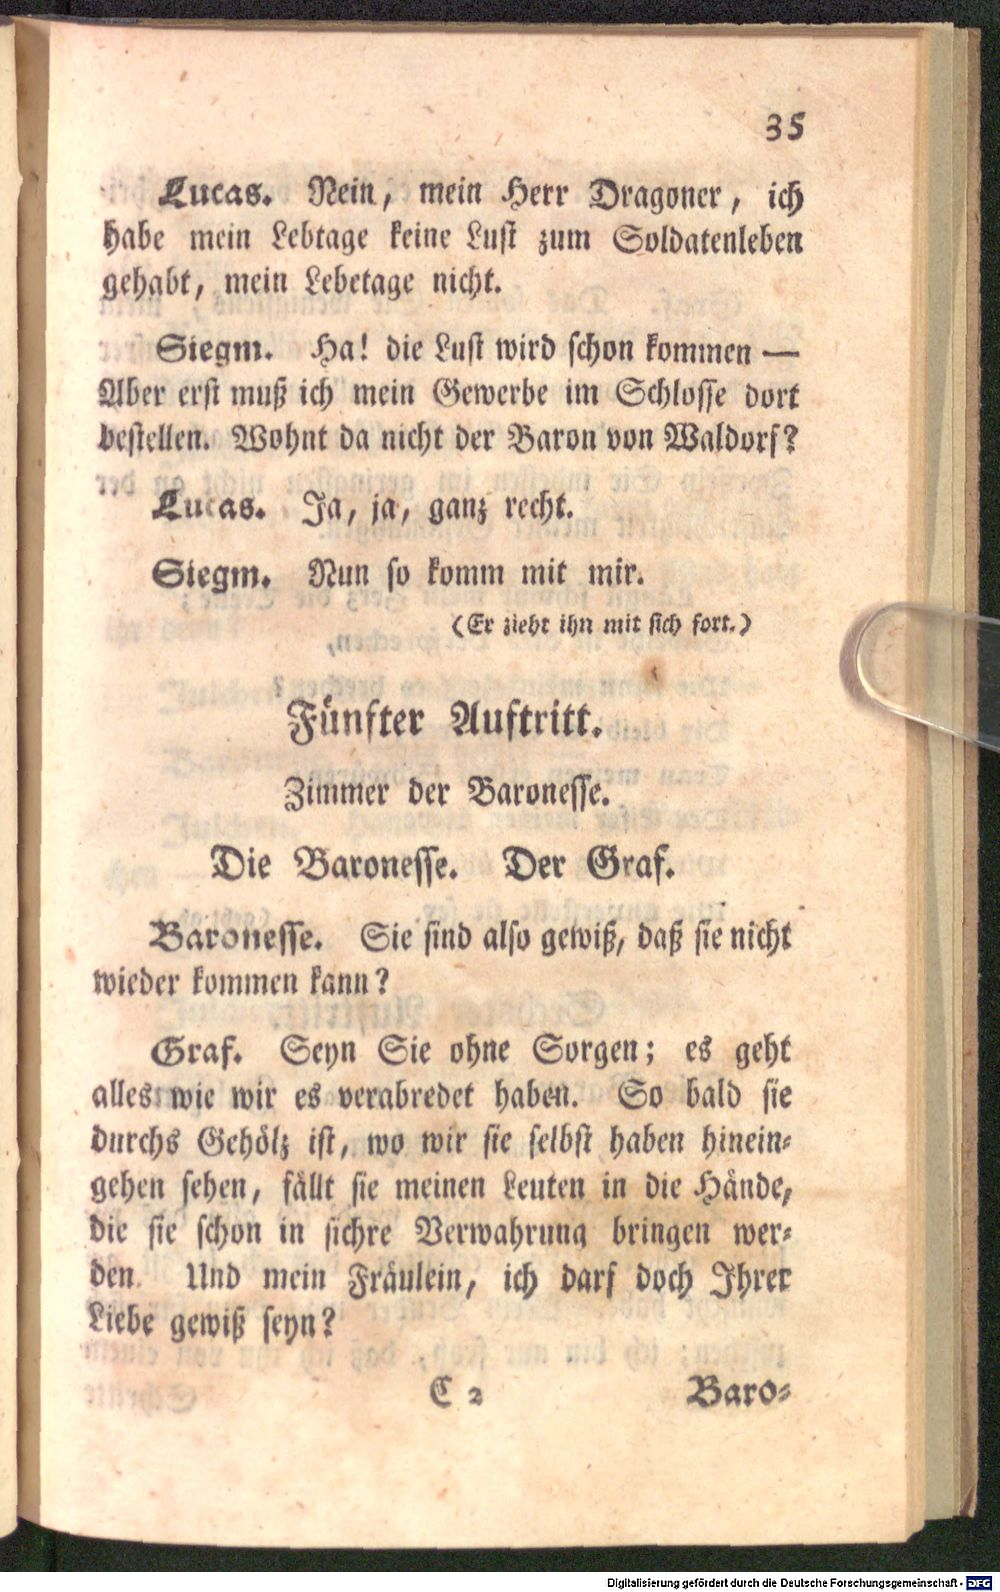 35
Lucas. Nein, mein Herr Dragoner, ich
habe mein Lebtage keine Lust zum Soldatenleben
gehabt, mein Lebetage nicht.
Siegm. Ha! die Lust wird schon kommen —
Aber erst muß ich mein Gewerbe im Schlosse dort
bestellen. Wohnt da nicht der Baron von Waldorf?
Lucas. Ja, ja, ganz recht.
Siegm. Nun so komm mit mir.
(Er zieht ihn mit sich fort.)
Fünfter Auftritt.
Zimmer der Baronesse.
Die Baronesse. Der Graf.
Baronesse. Sie sind also gewiß, daß sie nicht
wieder kommen kann?
Graf. Seyn Sie ohne Sorgen; es geht
alles wie wir es verabredet haben. So bald sie
durchs Gehölz ist, wo wir sie selbst haben hinein-
gehen sehen, fällt sie meinen Leuten in die Hände,
die sie schon in sichre Verwahrung bringen wer-
den. Und mein Fräulein, ich darf doch Ihrer
Liebe gewiß seyn?
C 2 Baro-
Digitalisierung gefördert durch die Deutsche Forschungsgemeinschaft - DFG